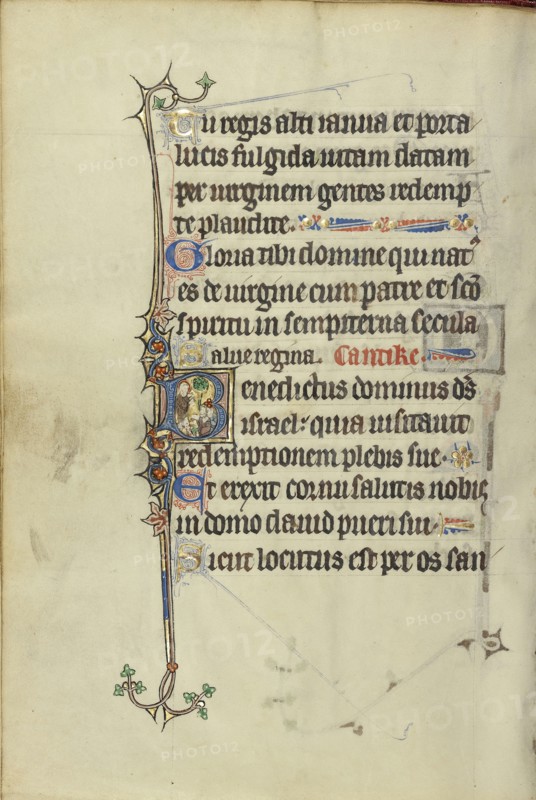 Tu regis alti ianua et porta
lucis fulgida uitam datam
per uirginem gentes redemp
te plaudite.
Gloria tibi domine qui natꝰ
es de uirgine cum patre et sc̄o
spiritu in sempiterna secula
Salue regina. Cantike.
Benedictus dominus ds̄
israel: quia uisitauit
redemptionem plebis sue.
Et erexit cornu salutis nobis
in domo dauid pueri sui.
Sicut locutus est per os san
PHOTO12